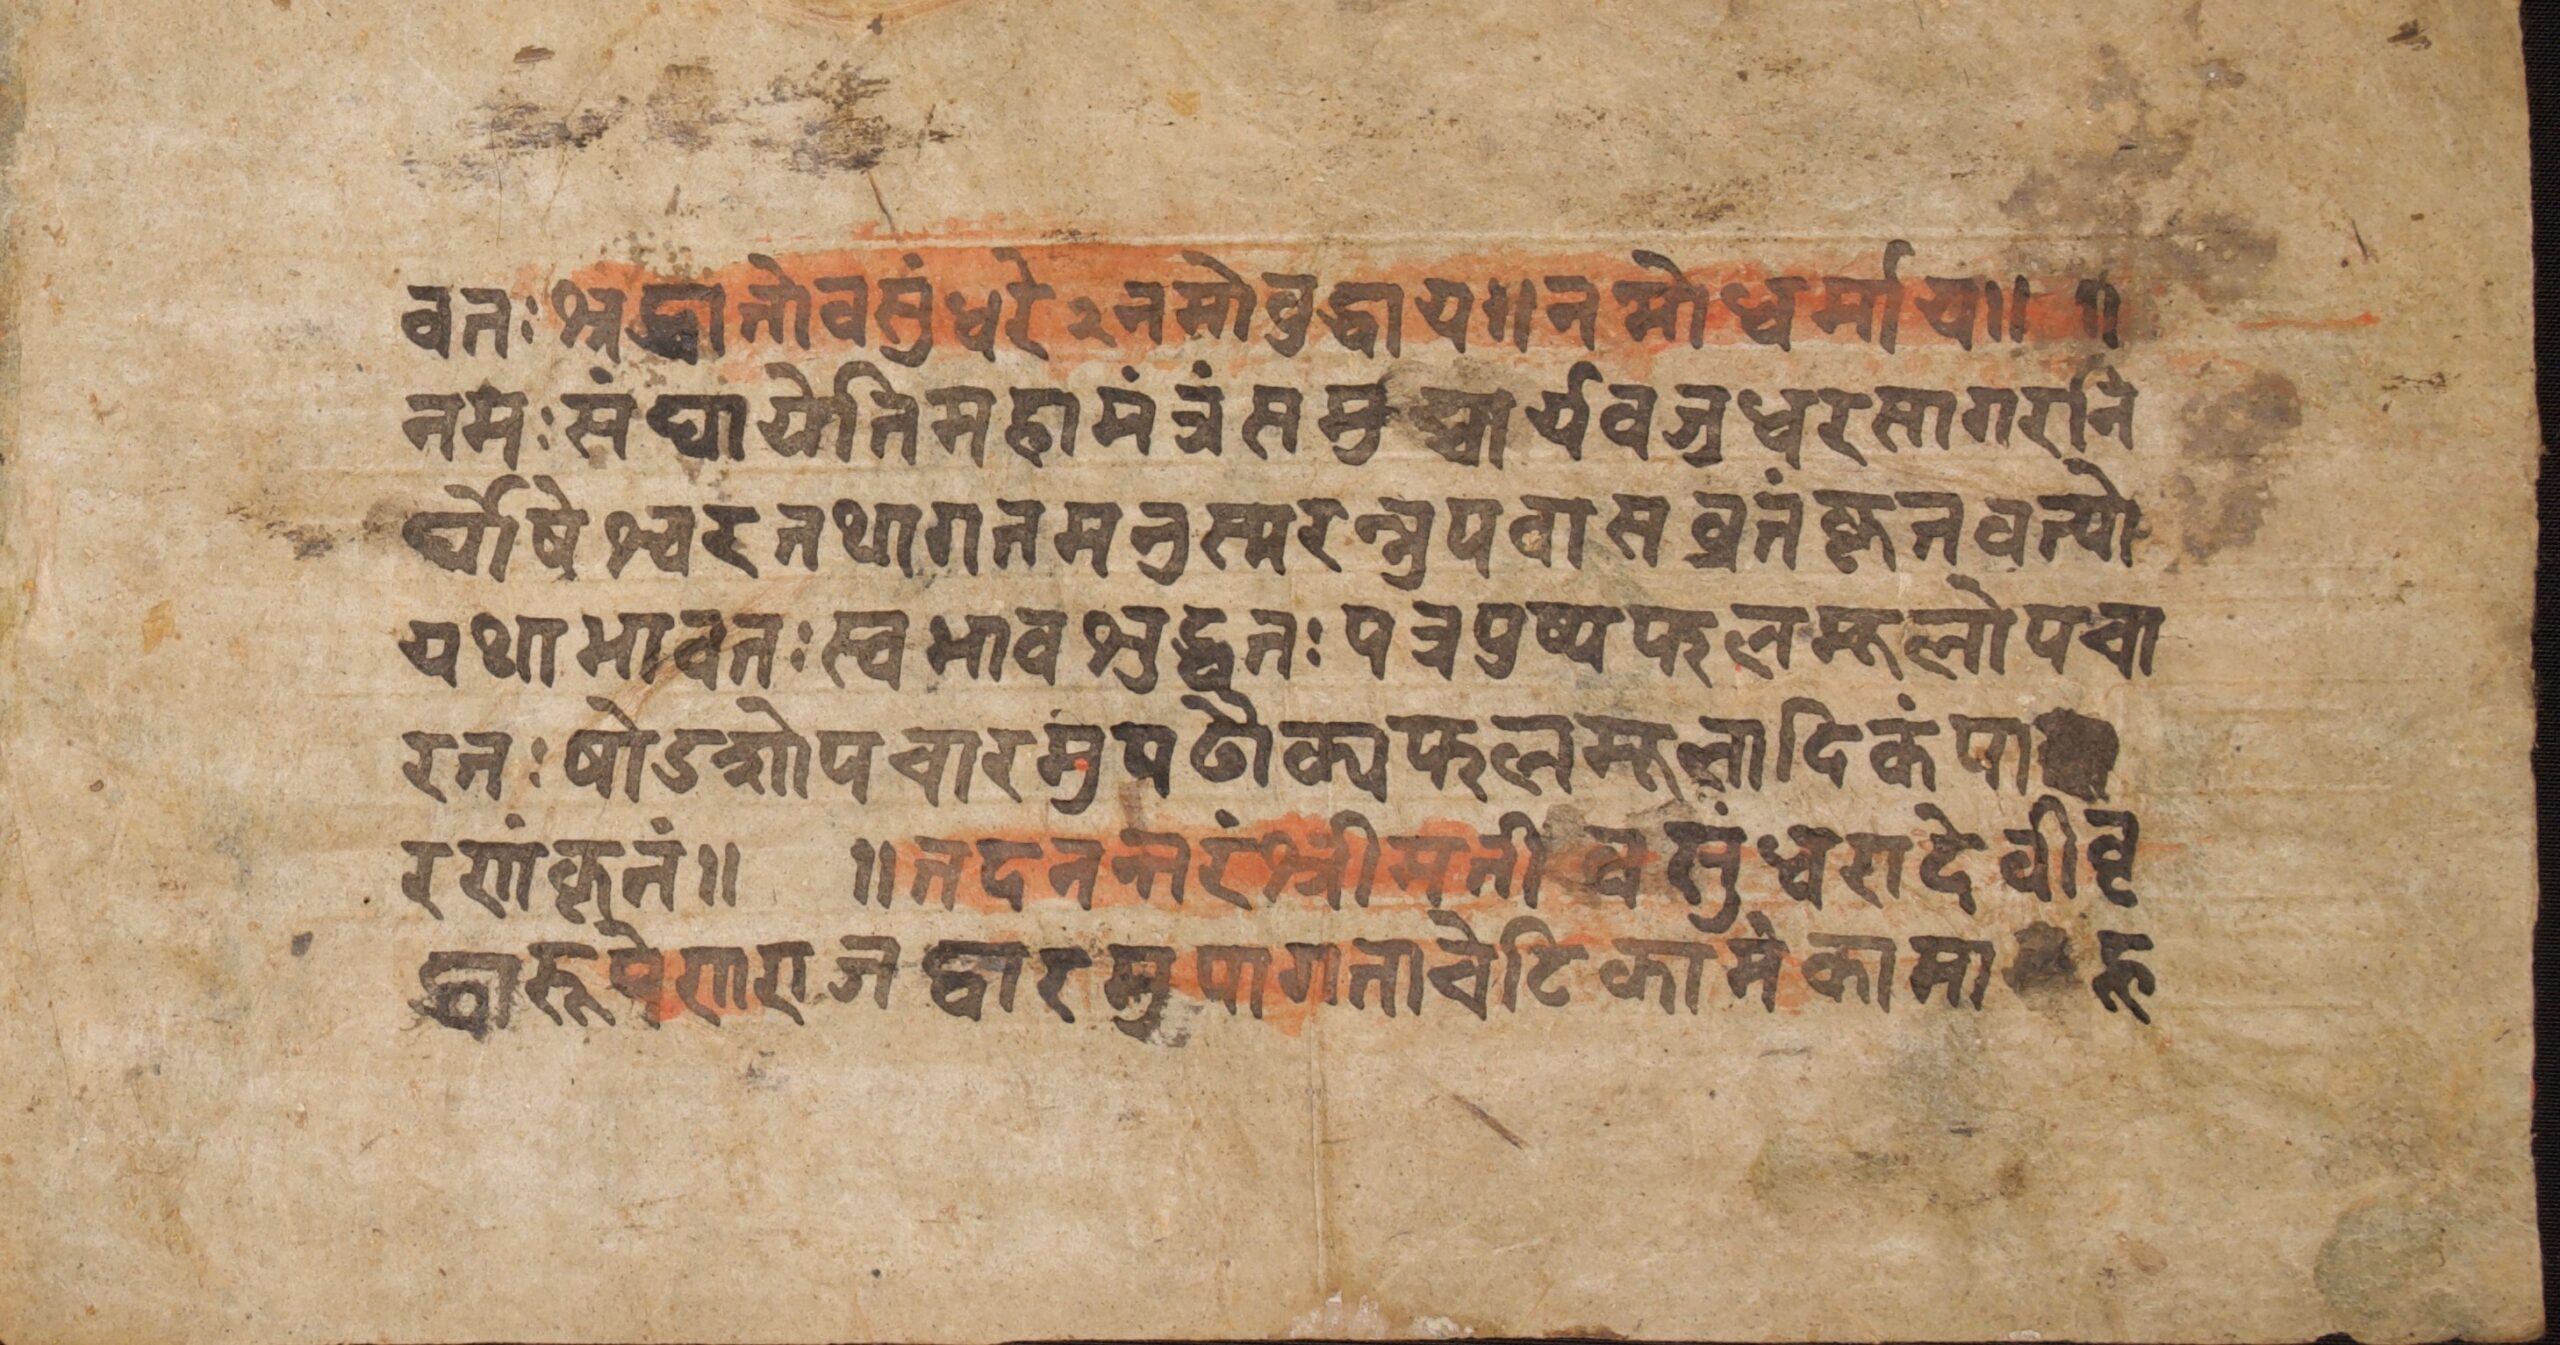 वतः श्रद्धातो वसुंधरे २ नमो वुद्धाय॥ नमो धर्माय॥ ॥
नमः संघायेति महामंत्रं समुच्चार्य वज्रधरसागरनि
र्घोषेश्वरतथागतमनुस्मरन्नुपवासव्रतं कृतवत्यो
यथाभावतः स्वभावशुद्धतः पत्रपुष्पफलमूलोपचा
रतः षोडशोपचारमुपढौक्य फलमूलादिकं पा
रणं कृतं॥ ॥ तदनन्तरं श्रीमती वसुंधरादेवी वृ
द्धारूपेण राजद्वारमुपागता चेटिकामेकामा हू